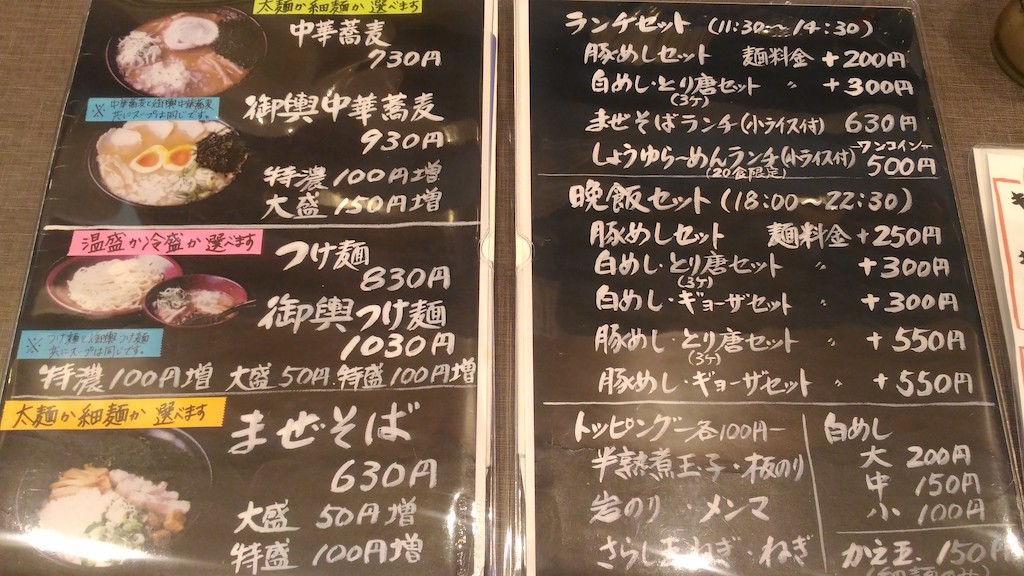 太麺か細麺か選べます
中華蕎麦
730円
※中華蕎麦と御輿中華蕎麦
共にスープは同じです。
御輿中華蕎麦
930円
特濃100円増
大盛150円増
温盛か冷盛か選べます
つけ麺
830円
御輿つけ麺
1030円
※つけ麺と御輿つけ麺
共にスープは同じです。
特濃100円増 大盛50円.特盛100円増
太麺か細麺か選べます
まぜそば
630円
大盛 50円増
特盛 100円増
ランチセット (11:30〜14:30)
豚めしセット 麺料金+200円
白めし・とり唐セット 〃 +300円
(3ケ)
まぜそばランチ(小ライス付) 630円
しょうゆら〜めんランチ(小ライス付) ワンコイン 500円
(20食限定)
晩飯セット (18:00〜22:30)
豚めしセット 麺料金+250円
白めし・とり唐セット 〃 +300円
(3ケ)
白めし・ギョーザセット 〃 +300円
豚めし・とり唐セット 〃 +550円
(3ケ)
豚めし・ギョーザセット 〃 +550円
トッピングー各100円ー
半熟煮玉子・板のり
岩のり・メンマ
さらしたまねぎ・ねぎ
白めし
大 200円
中 150円
小 100円
かえ玉・150円